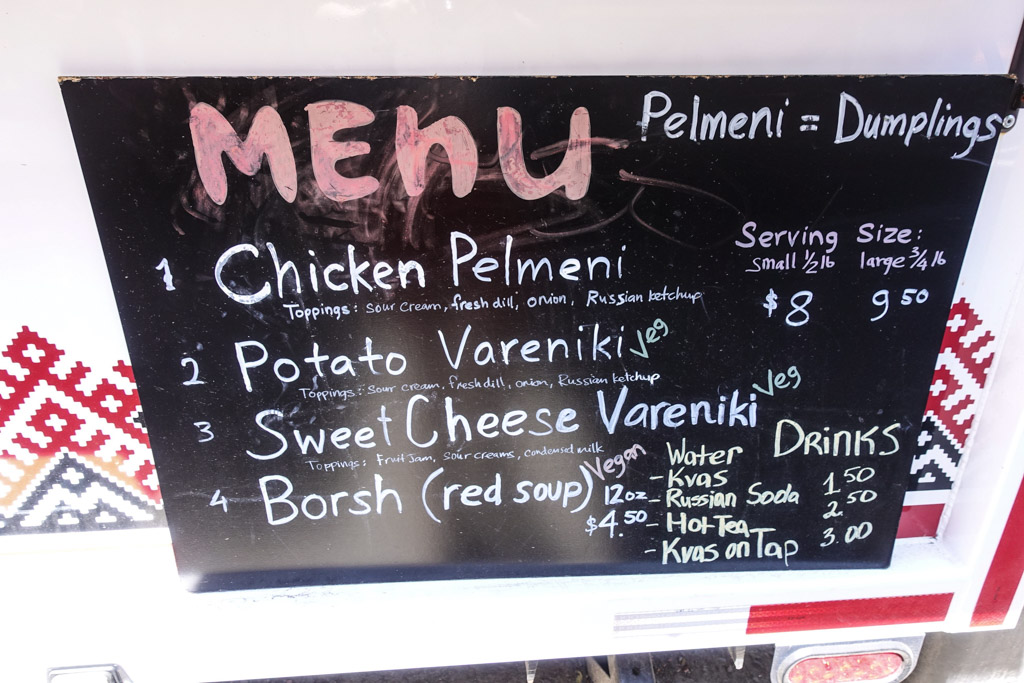 MENU
Pelmeni = Dumplings
Serving Size:
small 1/2 lb large 3/4 lb
$8 9 50
1 Chicken Pelmeni
Toppings: Sour Cream, fresh dill, onion, Russian ketchup
2 Potato Vareniki Veg
Toppings: Sour cream, fresh dill, onion, Russian ketchup
3 Sweet Cheese Vareniki Veg
Toppings: Fruit Jam, sour creams, condensed milk
4 Borsh (red soup) Vegan
12oz
$4.50
DRINKS
Water
- Kvas 1 50
- Russian Soda 2.50
- Hot Tea
- Kvas on Tap 3.00